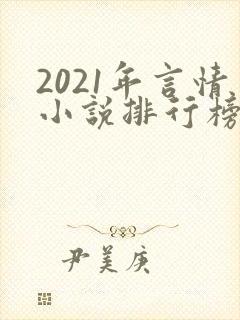 2021年言情
小说排行榜
尹美庚